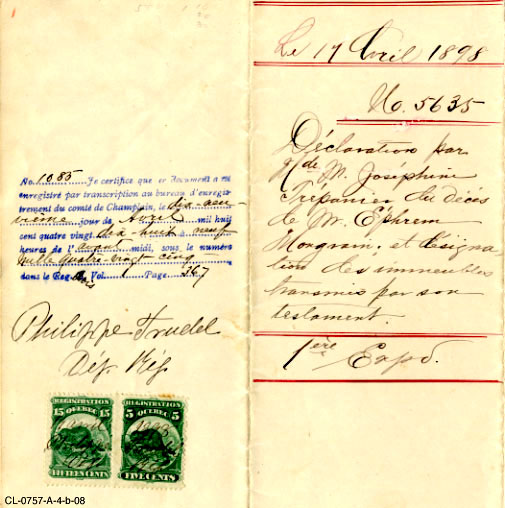 No. 1085 Je certifie que ce Document a été
enregistré par transcription au bureau d'enregis-
trement du comté de Champlain, le dix-neu-
vième jour de Avril mil huit
cent quatre vingt dix-huit à neuf
heures de l'avant midi, sous le numéro
mille quatre-vingt cinq
dans le Reg. Vol. Page 367
Philippe Trudel
Dép. Rég.
REGISTRATION
15 QUEBEC 15
FIFTEEN CENTS
REGISTRATION
5 QUEBEC 5
FIVE CENTS
CL-0757-A-4-b-08
Le 17 Avril 1898
No. 5635
Déclaration par
de M. Joséphine
Trépanier du décès
de Mr. Ephrem
Mongrain, et désigna-
tion des immeubles
transmis par son
testament.
1ère Expd.